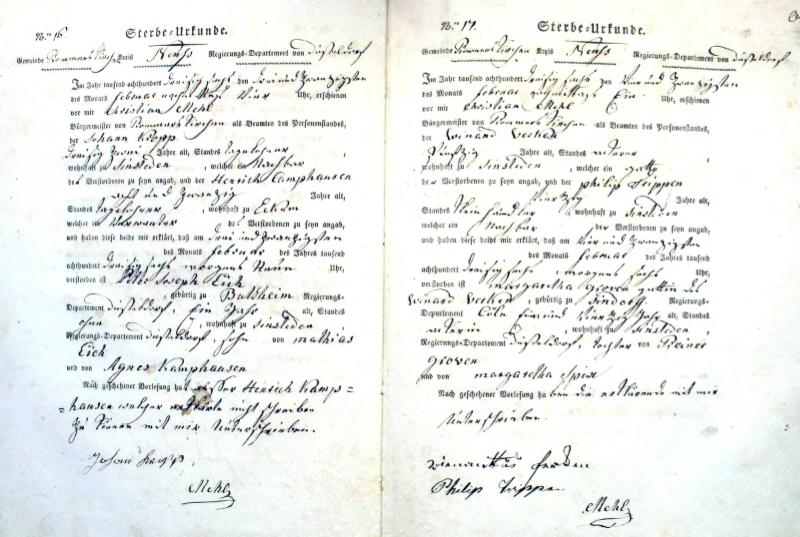 Nro 16
Sterbe-Urkunde.
Gemeinde Rommerskirchen Kreis Neuß Regierungs-Departement von Düsseldorf
Im Jahr tausend achthundert dreisig sechs den drei und zwanzigsten
des Monats februar nachmittags vier Uhr, erschienen
vor mir Christian Mehl
Bürgermeister von Rommerskirchen als Beamten des Personenstandes,
der Johann Kropp
dreisig zwei Jahre alt, Standes tagelohner,
wohnhaft zu Sinsteden, welcher ein Nachbar
des Verstorbenen zu seyn angab, und der Henrich Camphausen
acht und zwanzig Jahre alt,
Standes tagelohner, wohnhaft zu Eckum
welcher ein Verwander des Verstorbenen zu seyn angab,
und haben diese beide mir erklärt, daß am drei und zwanzigsten
des Monats februar des Jahres tausend
achthundert dreisig sechs morgens Neun Uhr,
verstorben ist Joseph Eich
, gebürtig zu Butzheim Regierungs-
Departement düsseldorf, Ein Jahr alt, Standes
ohne, wohnhaft zu Sinsteden
Regierungs-Departement düsseldorf, sohn von mathias
Eich
und von Agnes Kamphausen
Nach geschehener Vorlesung hat außer Henrich Kamp=
=hausen welcher erklärte nicht schreiben
zu können mit mir Unterschrieben.
Johan Kropp
Mehl
Nro 17.
Sterbe-Urkunde.
Gemeinde Rommerskirchen Kreis Neuß Regierungs-Departement von düsseldorf
Im Jahr tausend achthundert dreisig sechs den vier und zwanzigsten
des Monats februar nachmittags Ein Uhr, erschienen
vor mir Christian Mehl
Bürgermeister von Rommerskirchen als Beamten des Personenstandes,
der Winand
fünfzig Jahre alt, Standes ackerer
wohnhaft zu Sinsteden, welcher ein gatte
der Verstorbenen zu seyn angab, und der philip Trippen
vierzig Jahre alt,
Standes händler, wohnhaft zu Sinsteden
welcher ein Nachbar der Verstorbenen zu seyn angab,
und haben diese beide mir erklärt, daß am vier und zwanzigsten
des Monats februar des Jahres tausend
achthundert dreisig sechs, morgens sechs Uhr,
verstorben ist margaretha Groven gattin des
Winand, gebürtig zu Sindorf, Regierungs-
Departement Cöln, und vierzig Jahr alt, Standes
ackerin, wohnhaft zu Sinsteden,
Regierungs-Departement Düsseldorf, tochter von Reiner
Groven
und von margaretha
Nach geschehener Vorlesung haben die erklärende mit mir
Unterschrieben.
Philip Trippen
Mehl